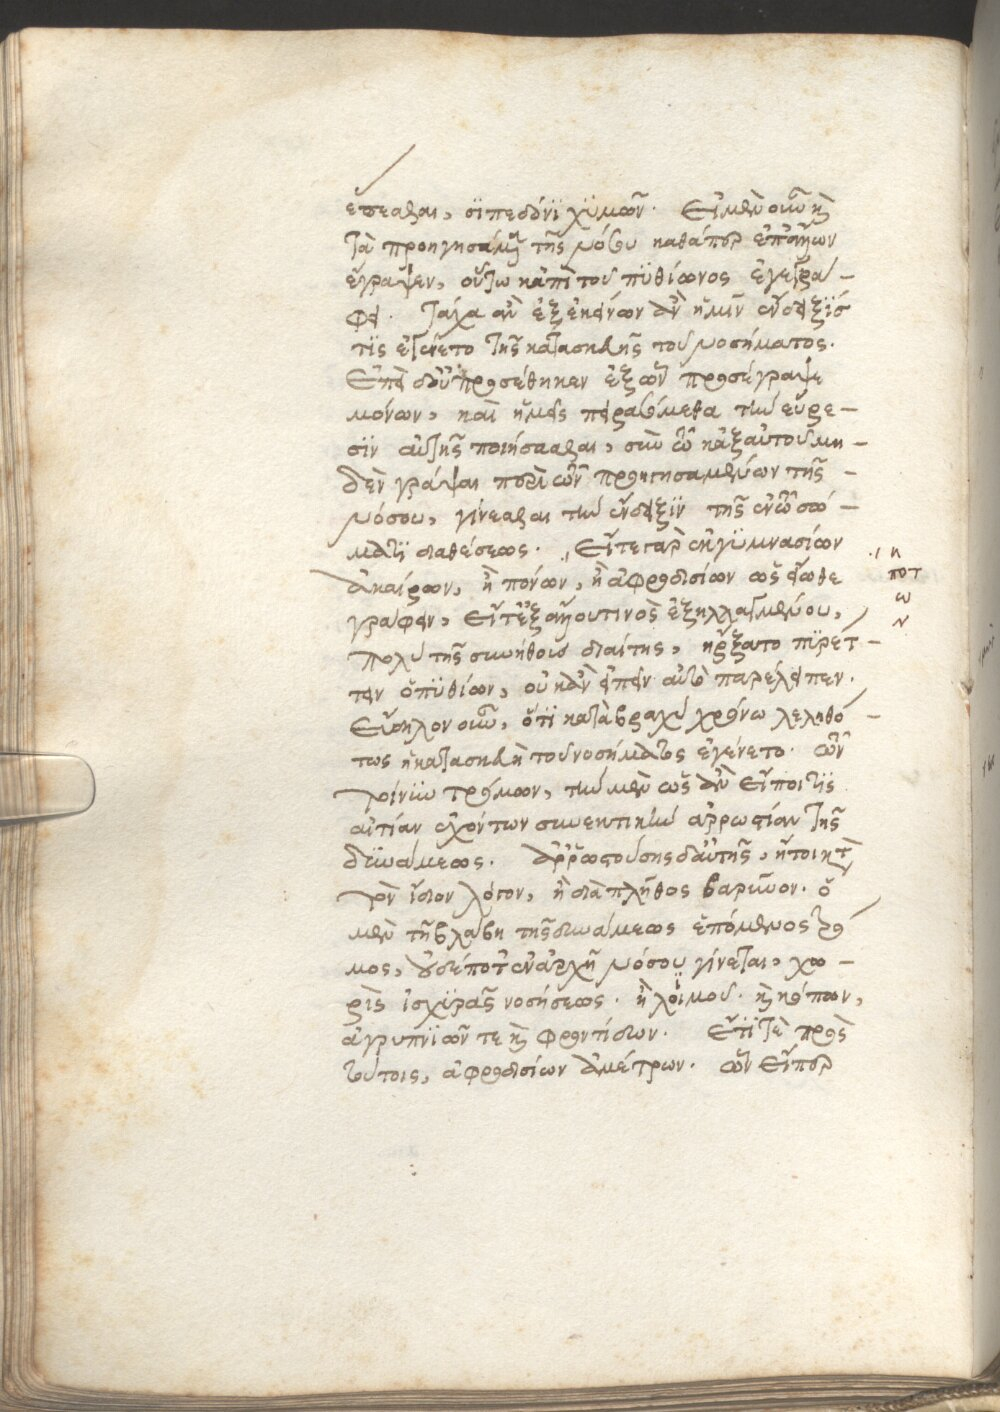 ἕπεσθαι, οἵπερ δύνϊ χϋμῶν. Εἰ μὲν οὖν κὶ
τὰ προηγησάμενα τῆς νόσου καθάπερ ἐπ' ἄλλων
ἔγραψεν, οὕτω κἀπὶ τοῦ πϋθίωνος ἐγεγρά –
φει. Τάχα ἂν ἐξ ἐκείνων ἂν ἡμῖν ἔνδειξΐς
τϊς ἐγένετο τῆς κατασκευῆς τοῦ νοσήματος.
Ἐπεὶ δ' οὐ προσέθηκεν ἐξ ὧν προσέγραψε
μόνων, καὶ ἡμεῖς πειρασόμεθα τὴν εὕρε –
σϊν αὐτῆς ποιήσασθαι, σὺν τῶ κἀξ αὐτοῦ μη –
δὲν γράψαι περὶ τῶν προηγησαμένων τῆς –
νόσου, γίνεσθαι τὴν ἔνδειξϊν τῆς ἐν τῶ σώ –
ματϊ διαθέσεως. Εἴτε γὰρ ἐκ γϋμνασίων
ἀκαίρων, ἢ πόνων, ἢ ἀφροδισίων ὡς εἴωθε
γράφειν, εἴτ' ἐξ ἄλλου τινὸς ἐξηλλαγμένου,
πολὺ τῆς συνήθους διαίτης, ἤρξατο πϋρέτ –
τειν ὁ πϋθίων, οὐκ ἂν εἰπεῖν αὐτὸ παρέλειπεν.
Εὔδηλον οὖν, ὅτϊ κατὰ βραχὺ χρόνω λεληθό –
τως ἡ κατασκευὴ τοῦ νοσήματος ἐγένετο. τῶν
τοίνϋν τρόμων, τὴν μὲν ὡς ἂν εἴποι τϊς
αἰτίαν ἐχόντων συνεκτικὴν ἀρρωστίαν τῆς
δϋνάμεως. ἀρρωστούσης δ' αὐτῆς, ἤτοι κατὰ
τὸν ἴδιον λόγον, ἢ διὰ πλῆθος βαρῦνον. ὁ
μὲν τῆ βλάβη τῆς δυνάμεως ἑπόμενος τρό
μος, οὐδέποτ' ἐν ἀρχῆ νόσου γίνεται, χω –
ρὶς ἰσχϋρᾶς νοσήσεως. ἢ λοιμοῦ. κὶ κόπων,
ἀγρυπνϊῶν τε κὶ φροντίδων. Ἔτϊ τε πρὸς
τούτοις, ἀφροδισίων ἀμέτρων. ὧν εἴπερ
η
ποτ
ω
ν